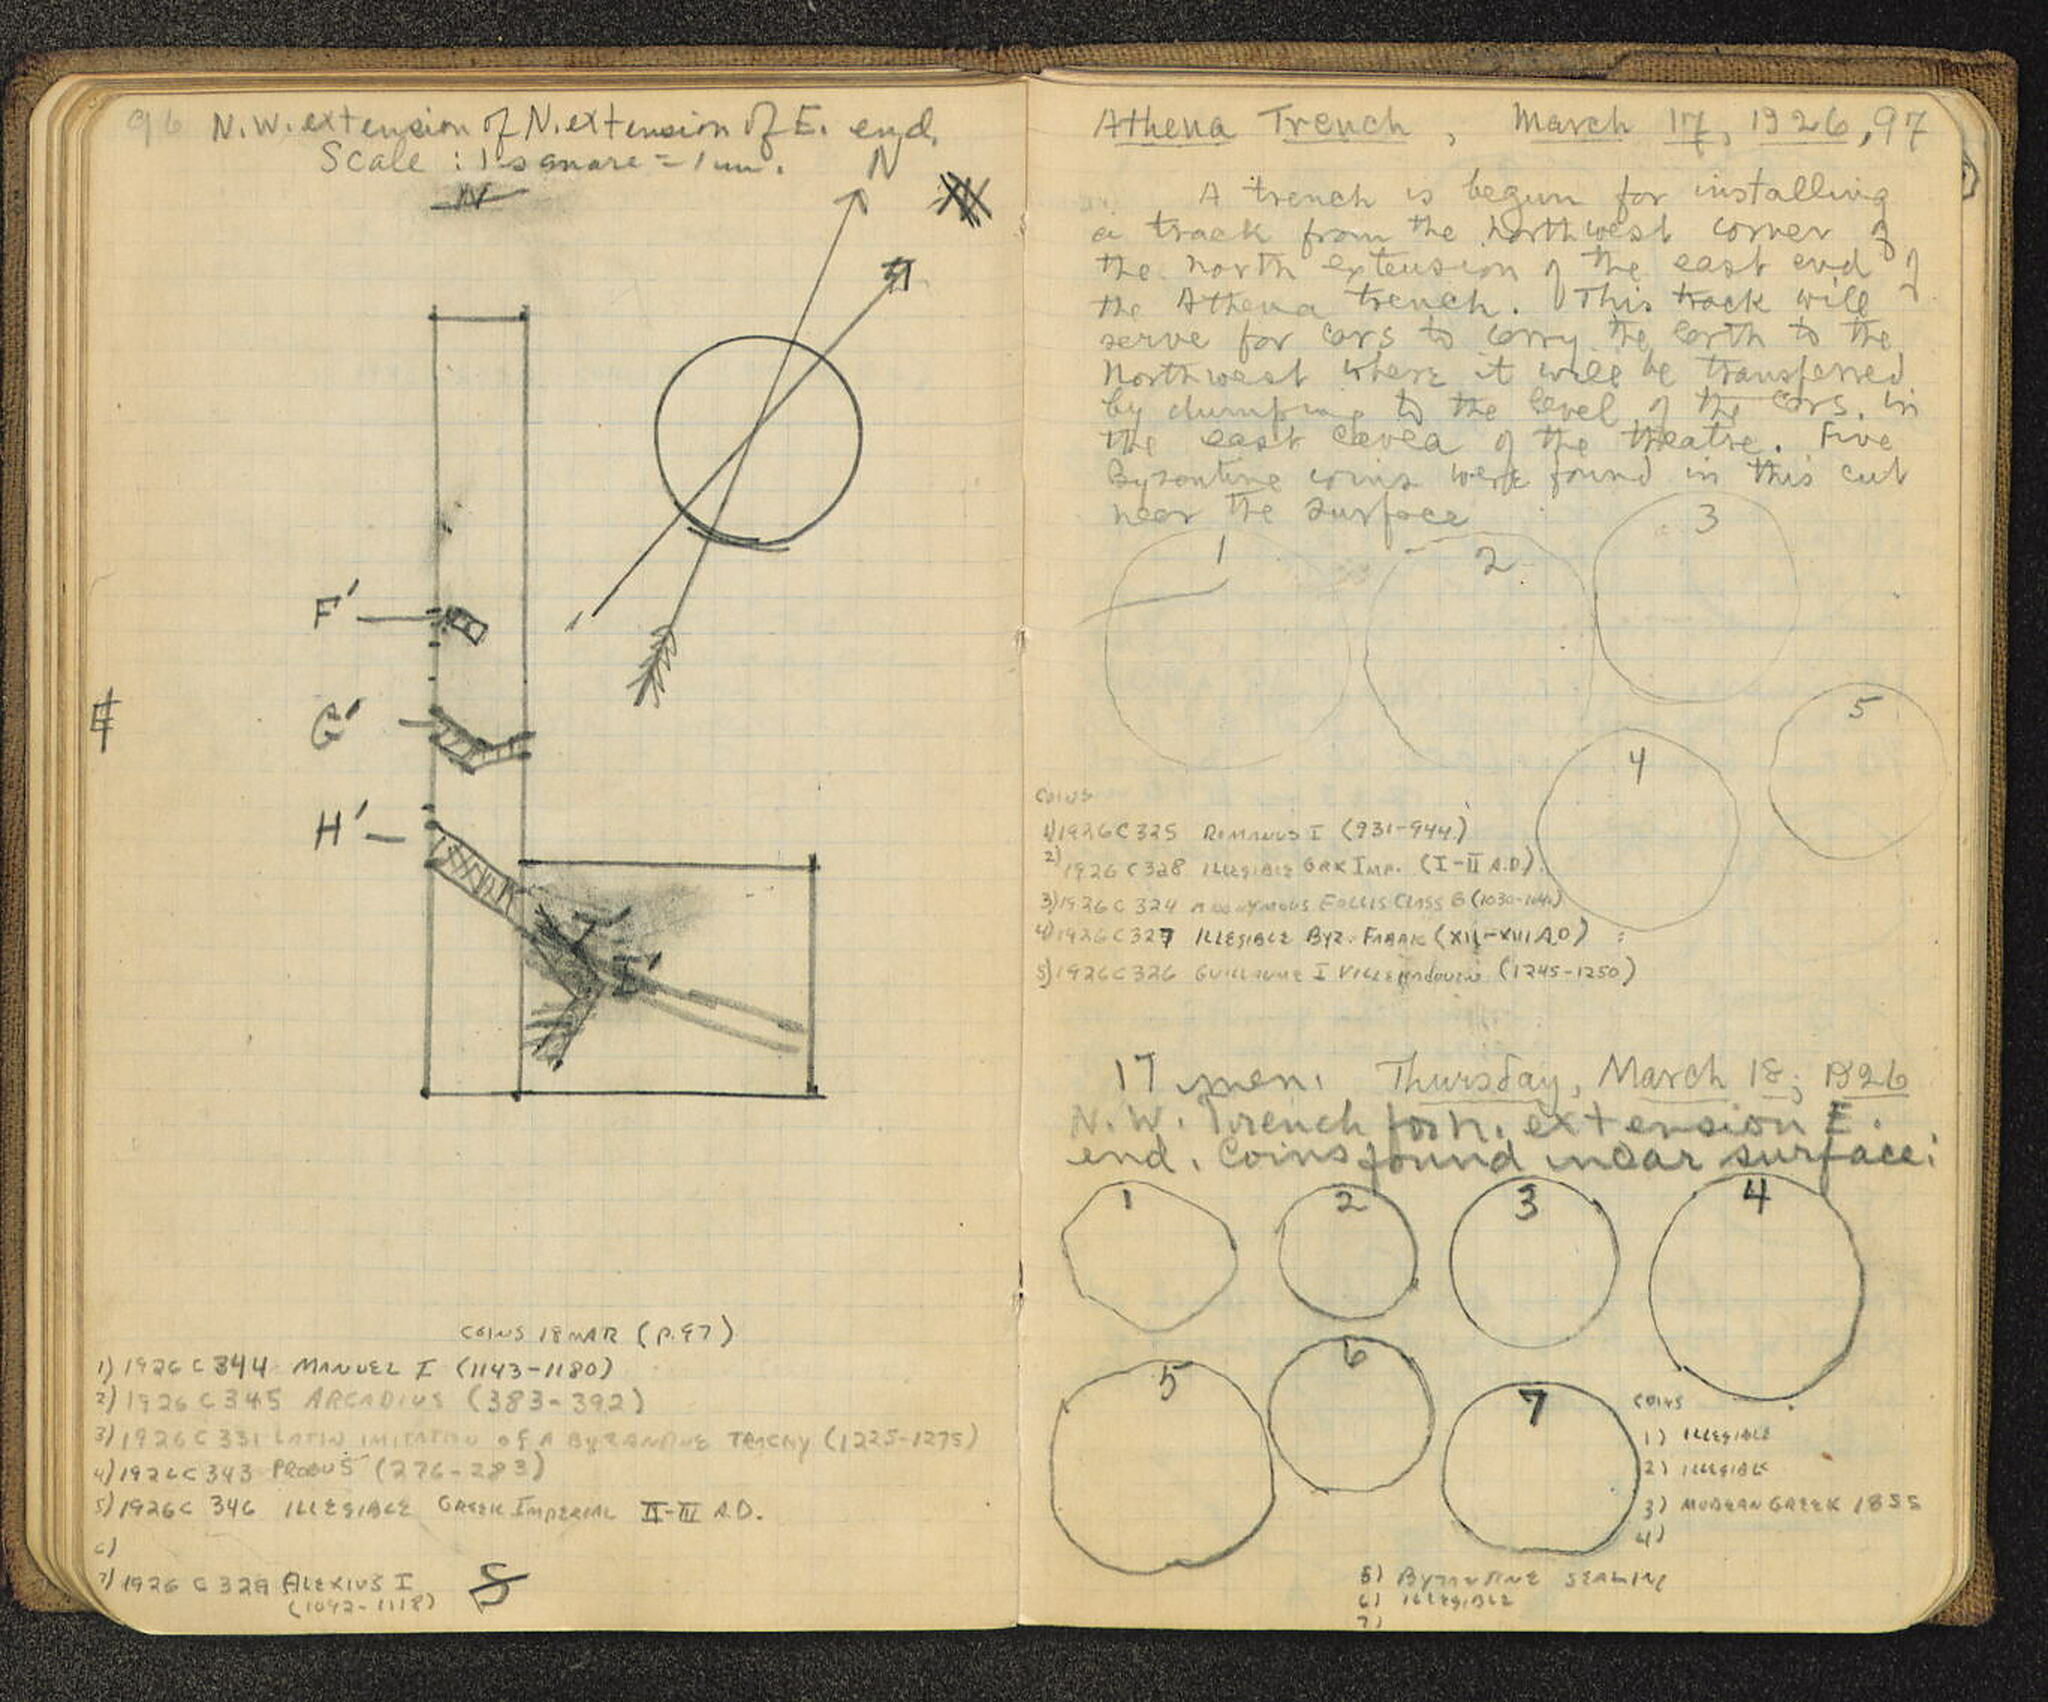 96 N.W. extension of N. extension of E. end.
Scale : 1 square = 1 m.
N
N
N
F'
G'
E
H'
I'
COINS 18 MAR (P. 97)
1) 1926 C 344 MANUEL I (1143-1180)
2) 1926 C 345 ARCADIUS (383-392)
3) 1926 C 331 LATIN IMITATION OF A BYZANTINE TRACHY (1225-1275)
4) 1926 C 343 PROBUS (276-283)
5) 1926 C 346 ILLEGIBLE GREEK IMPERIAL II-III A.D.
6)
7) 1926 C 329 ALEXIUS I
(1092-1118)
S
Athena Trench, March 17, 1926, 97
A trench is begun for installing
a track from the northwest corner of
the north extension of the east end of
the Athena trench. This track will
serve for cars to carry the earth to the
northwest where it will be transferred
by dumping to the level of the cars in
the east cavea of the theatre. Five
Byzantine coins were found in this cut
near the surface
1
2
3
4
5
COINS
1) 1926 C 325 ROMANUS I (931-944)
2) 1926 C 328 ILLEGIBLE GRK IMP. (I-II A.D.)
3) 1926 C 324 ANONYMOUS FOLLIS CLASS B (1030-1042)
4) 1926 C 327 ILLEGIBLE BYZ. FABRIC (XII-XIII A.D)
5) 1926 C 326 GUILLAUME I VILLEHARDOUIN (1245-1250)
17 men. Thursday, March 18, 1926
N.W. Trench from n. extension E.
end. Coins found near surface:
1
2
3
4
5
6
7
COINS
1) ILLEGIBLE
2) ILLEGIBLE
3) MODERN GREEK 1855
4)
5) BYZANTINE SEALING
6) ILLEGIBLE
7)